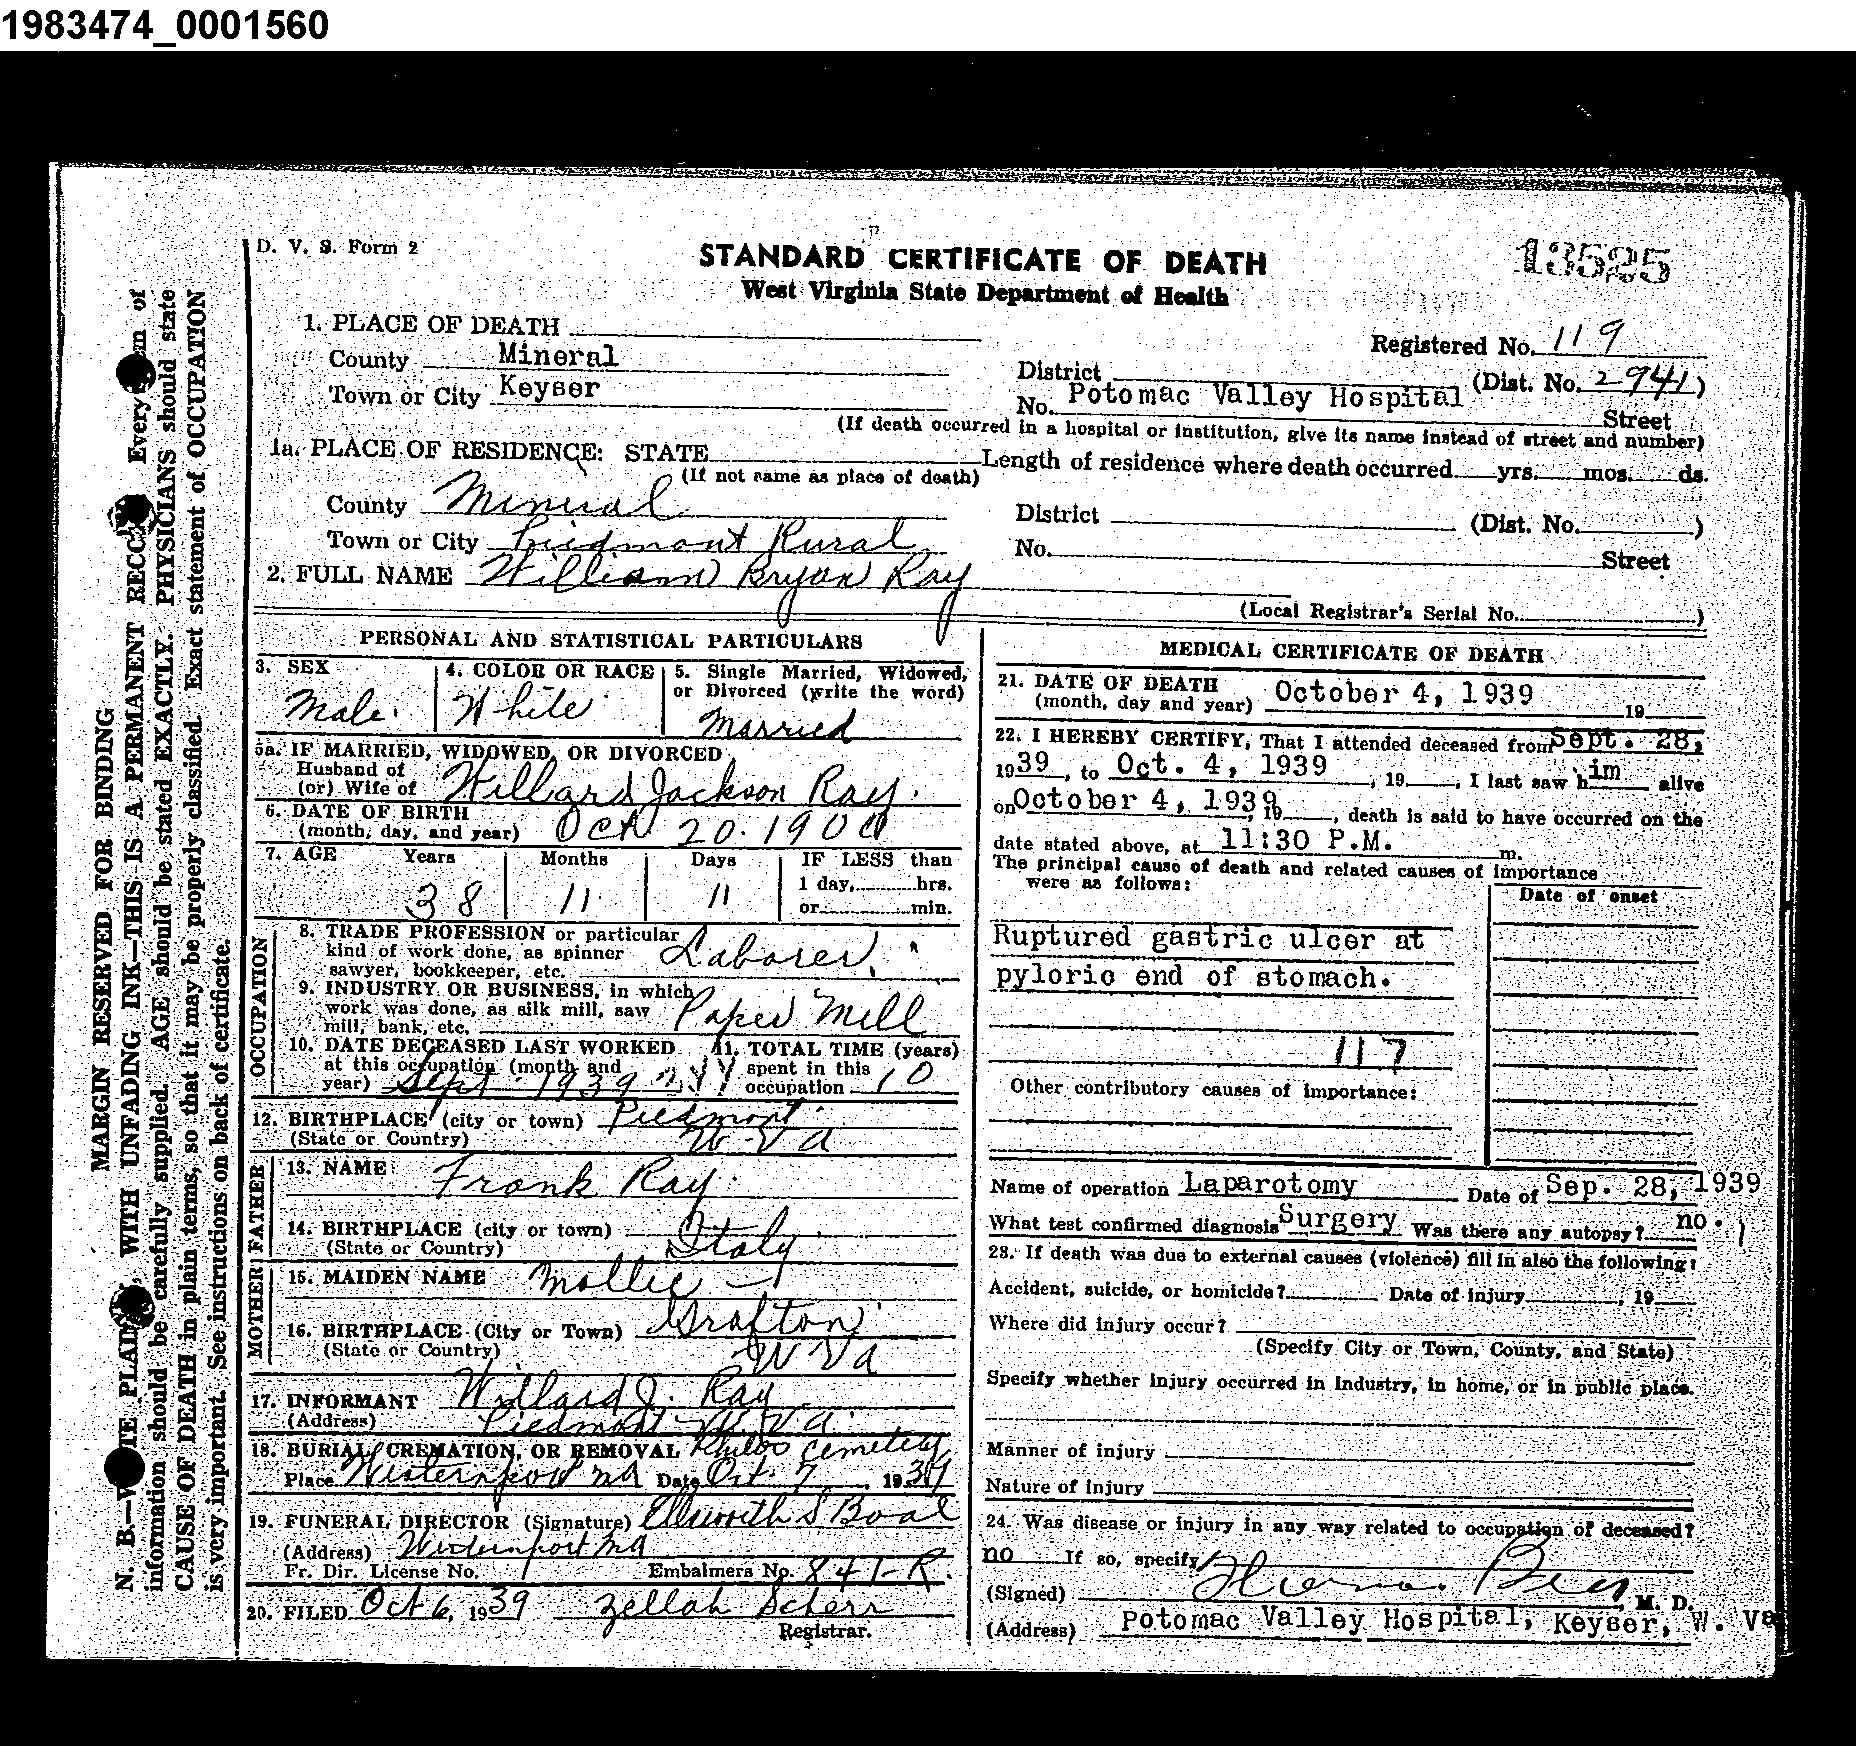 1983474_0001560
D. V. S. Form 2
STANDARD CERTIFICATE OF DEATH
13525
West Virginia State Department of Health
1. PLACE OF DEATH
Registered No. 119
County Mineral
District (Dist. No. 2941)
Town or City Keyser
No. Potomac Valley Hospital Street
(If death occurred in a hospital or institution, give its name instead of street and number)
1a. PLACE OF RESIDENCE: STATE
Length of residence where death occurred yrs. mos. ds.
(If not same as place of death)
County Mineral
District (Dist. No. )
Town or City Piedmont Rural
No. Street
2. FULL NAME William Bryan Ray
(Local Registrar's Serial No. )
PERSONAL AND STATISTICAL PARTICULARS
3. SEX
Male
4. COLOR OR RACE
White
5. Single Married, Widowed,
or Divorced (write the word)
Married
5a. IF MARRIED, WIDOWED, OR DIVORCED
Husband of
(or) Wife of Willard Jackson Ray.
6. DATE OF BIRTH
(month, day, and year) Oct 20. 1900
7. AGE Years Months Days IF LESS than
1 day, hrs.
or min.
38 11 11
OCCUPATION
8. TRADE PROFESSION or particular
kind of work done, as spinner
sawyer, bookkeeper, etc. Laborer
9. INDUSTRY OR BUSINESS, in which
work was done, as silk mill, saw
mill, bank, etc. Paper Mill
10. DATE DECEASED LAST WORKED
at this occupation (month and
year) Sept 1939
11. TOTAL TIME (years)
spent in this
occupation 10
12. BIRTHPLACE (city or town) Piedmont
(State or Country) W-Va
FATHER
13. NAME Frank Ray.
14. BIRTHPLACE (city or town)
(State or Country) Italy
MOTHER
15. MAIDEN NAME Mollie —
16. BIRTHPLACE (City or Town) Grafton
(State or Country) W Va
17. INFORMANT Willard J. Ray
(Address) Piedmont W. Va.
18. BURIAL, CREMATION, OR REMOVAL Philos Cemetery
Place Westernport Md Date Oct. 7 1939
19. FUNERAL DIRECTOR (Signature) Ellsworth S Boal
(Address) Westernport Md
Fr. Dir. License No. Embalmers No. 841-R.
20. FILED Oct 6, 1939 Zellah Scherr
Registrar.
MEDICAL CERTIFICATE OF DEATH
21. DATE OF DEATH
(month, day and year) October 4, 1939 19
22. I HEREBY CERTIFY, That I attended deceased from Sept. 28,
1939, to Oct. 4, 1939, 19 , I last saw him alive
on October 4, 1939, 19 , death is said to have occurred on the
date stated above, at 11:30 P.M. m.
The principal cause of death and related causes of importance
were as follows:
Date of onset
Ruptured gastric ulcer at
pyloric end of stomach.
117
Other contributory causes of importance:
Name of operation Laparotomy Date of Sep. 28, 1939
What test confirmed diagnosis Surgery Was there any autopsy? no.
23. If death was due to external causes (violence) fill in also the following:
Accident, suicide, or homicide? Date of injury , 19
Where did injury occur?
(Specify City or Town, County, and State)
Specify whether injury occurred in Industry, in home, or in public place.
Manner of injury
Nature of injury
24. Was disease or injury in any way related to occupation of deceased?
no If so, specify
(Signed) M. D.
(Address) Potomac Valley Hospital, Keyser, W. Va
MARGIN RESERVED FOR BINDING
WITH UNFADING INK—THIS IS A PERMANENT Every of
information should be carefully supplied. AGE should be stated EXACTLY. PHYSICIANS should state
CAUSE OF DEATH in plain terms, so that it may be properly classified. Exact statement of OCCUPATION
is very important. See instructions on back of certificate.